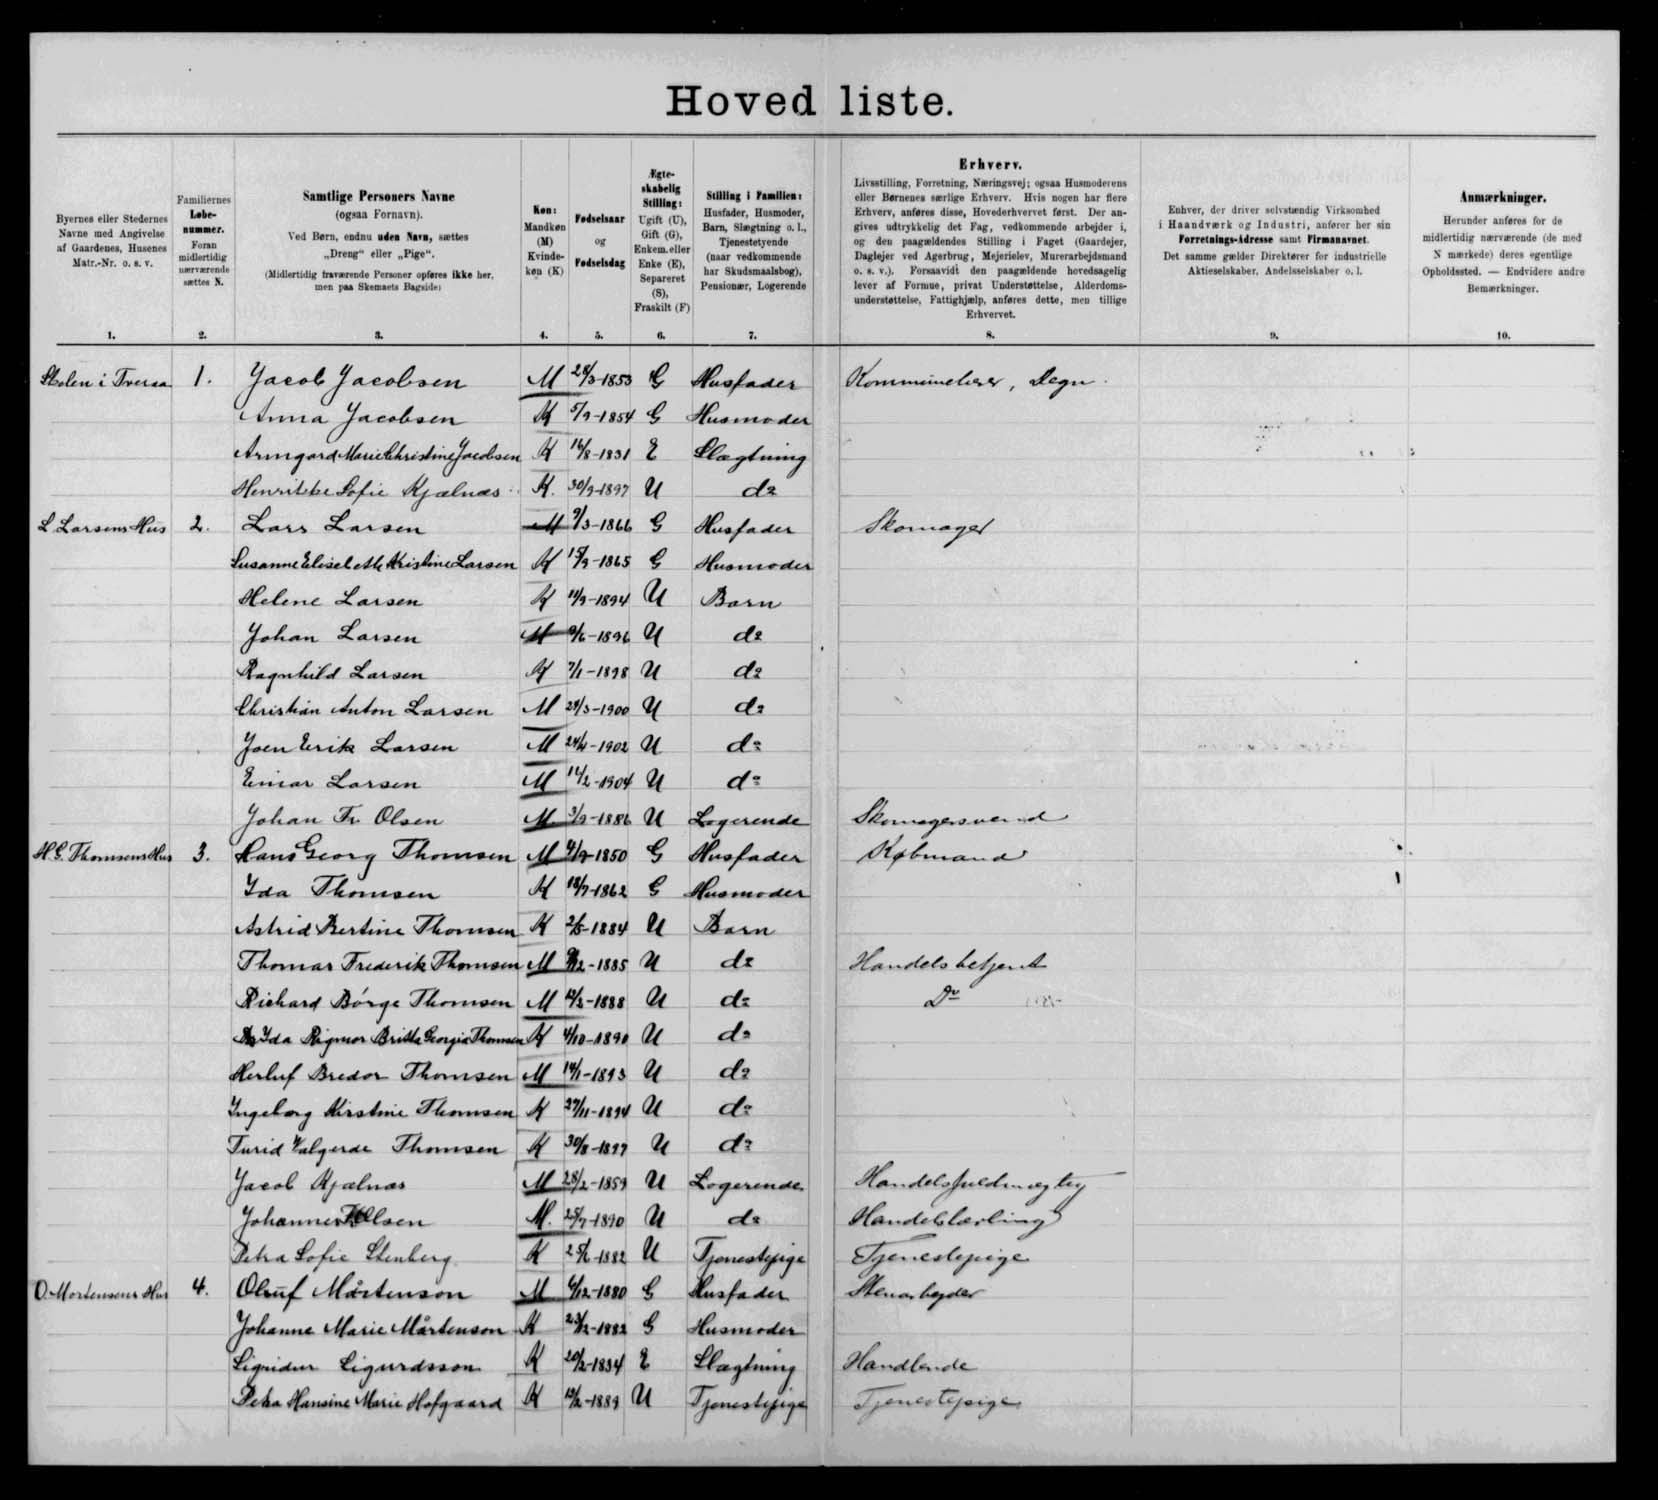 Hoved liste.
Byernes eller Stedernes
Navne med Angivelse
af Gaardenes, Husenes
Matr.-Nr. o. s. v.
1.
Familiernes
Løbe-
nummer.
Foran
midlertidig
nærværende
sættes N.
2.
Samtlige Personers Navne
(ogsaa Fornavn).
Ved Børn, endnu uden Navn, sættes
„Dreng" eller „Pige".
(Midlertidig fraværende Personer opføres ikke her,
men paa Skemaets Bagside)
3.
Køn:
Mandkøn
(M)
Kvinde-
køn (K)
4.
Fødselsaar
og
Fødselsdag
5.
Ægte-
skabelig
Stilling:
Ugift (U),
Gift (G),
Enkem. eller
Enke (E),
Separeret
(S),
Fraskilt (F)
6.
Stilling i Familien:
Husfader, Husmoder,
Barn, Slægtning o. l.,
Tjenestetyende
(naar vedkommende
har Skudsmaalsbog),
Pensionær, Logerende
7.
Erhverv.
Livsstilling, Forretning, Næringsvej; ogsaa Husmoderens
eller Børnenes særlige Erhverv. Hvis nogen har flere
Erhverv, anføres disse, Hovederhvervet først. Der an-
gives udtrykkelig det Fag, vedkommende arbejder i,
og den paagældendes Stilling i Faget (Gaardejer,
Daglejer ved Agerbrug, Mejerielev, Murerarbejdsmand
o. s. v.). Forsaavidt den paagældende hovedsagelig
lever af Formue, privat Understøttelse, Alderdoms-
understøttelse, Fattighjælp, anføres dette, men tillige
Erhvervet.
8.
Enhver, der driver selvstændig Virksomhed
i Haandværk og Industri, anfører her sin
Forretnings-Adresse samt Firmanavnet.
Det samme gælder Direktører for industrielle
Aktieselskaber, Andelsselskaber o. l.
9.
Anmærkninger.
Herunder anføres for de
midlertidig nærværende (de med
N mærkede) deres egentlige
Opholdssted. — Endvidere andre
Bemærkninger.
10.
Skolen i Tveraa 1. Jacob Jacobsen M 28/3-1853 G Husfader Kommunelærer, Degn.
Anna Jacobsen K 5/9-1854 G Husmoder
Armgard Marie Christine Jacobsen K 16/8-1831 E Slægtning
Henrikke Sofie Kjælnæs K. 30/9-1897 U do
L. Larsens Hus 2. Lars Larsen M 9/3-1866 G Husfader Skomager
Susanne Elisebeth Kristine Larsen K 15/9-1865 G Husmoder
Helene Larsen K 11/9-1894 U Barn
Johan Larsen M 9/6-1896 U do
Ragnhild Larsen K 7/1-1898 U do
Christian Anton Larsen M 28/3-1900 U do
Joen Erik Larsen M 24/4-1902 U do
Einar Larsen M 14/2-1904 U do
Johan Fr. Olsen M. 3/9-1886 U Logerende Skomagersvend
H. G. Thomsens Hus 3. Hans Georg Thomsen M 4/9-1850 G Husfader Købmand
Ida Thomsen K 18/7-1862 G Husmoder
Astrid Bertine Thomsen K 2/5-1884 U Barn
Thomas Frederik Thomsen M 9/12-1885 U do Handelsbetjent
Richard Børge Thomsen M 12/2-1888 U do Do
Ida Rigmor Britta Georgia Thomsen K 4/10-1890 U do
Herluf Bredor Thomsen M 14/1-1893 U do
Ingeborg Kirstine Thomsen K 27/11-1894 U do
Turid Valgerde Thomsen K 30/8-1897 U do
Jacob Kjælnæs M 28/2-1859 U Logerende Handelsfuldmægtig
Johannes Olsen M. 25/7-1890 U do Handelslærling
Petra Sofie Stenberg K 1882 U Tjenestepige Tjenestepige
O. Mortensens Hus 4. Oluf Mårtenson M 6/12-1880 G Husfader Stenarbejder
Johanne Marie Mårtenson K 23/12-1882 G Husmoder
Sigridur Sigurdsson K 20/2-1834 E Slægtning Handlende
Petra Hansine Marie Hofgaard K 1889 U Tjenestepige Tjenestepige